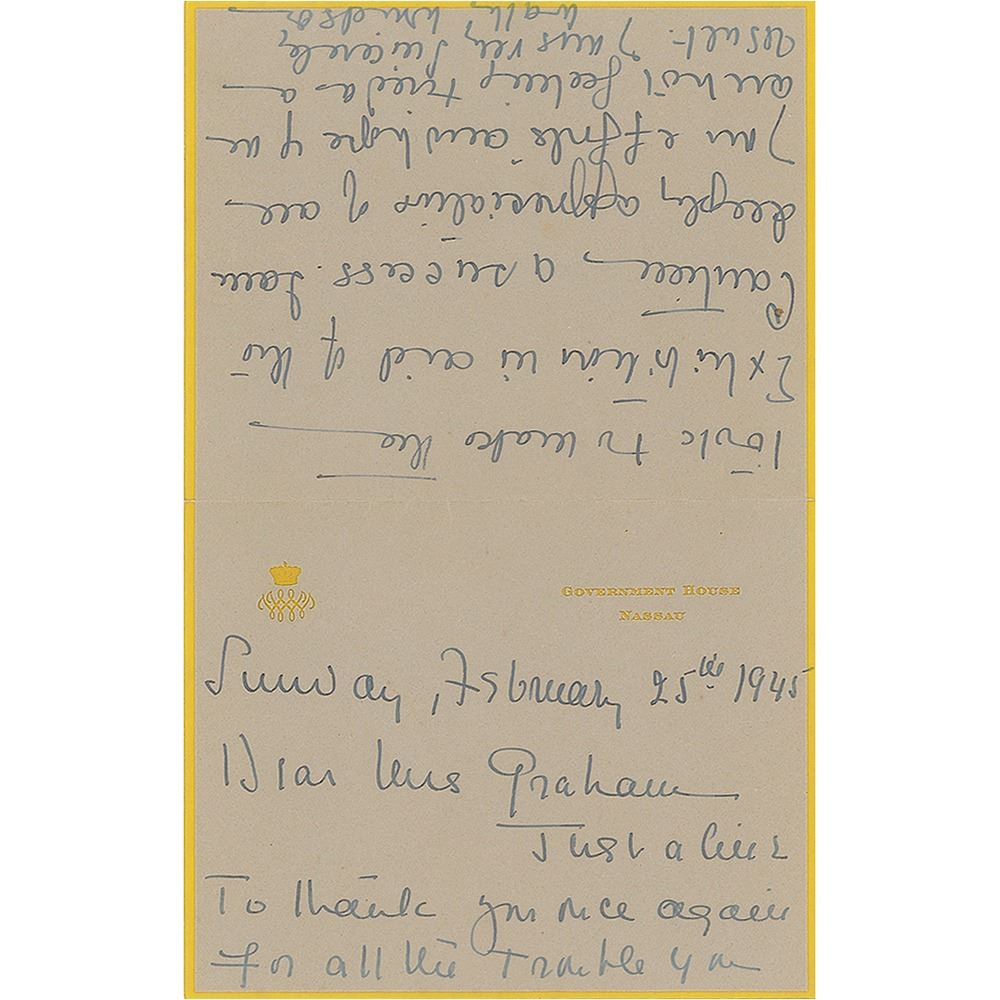 GOVERNMENT HOUSE
NASSAU
Sunday, February 25th 1945
Dear Mrs Graham
Just a line
To thank you once again
for all the trouble you
took to make the
Exhibition in aid of the
Canteen a success. I am
deeply appreciative of all
your efforts and hope you
are not feeling tired as a
result. Yours very sincerely,
Wallis Windsor